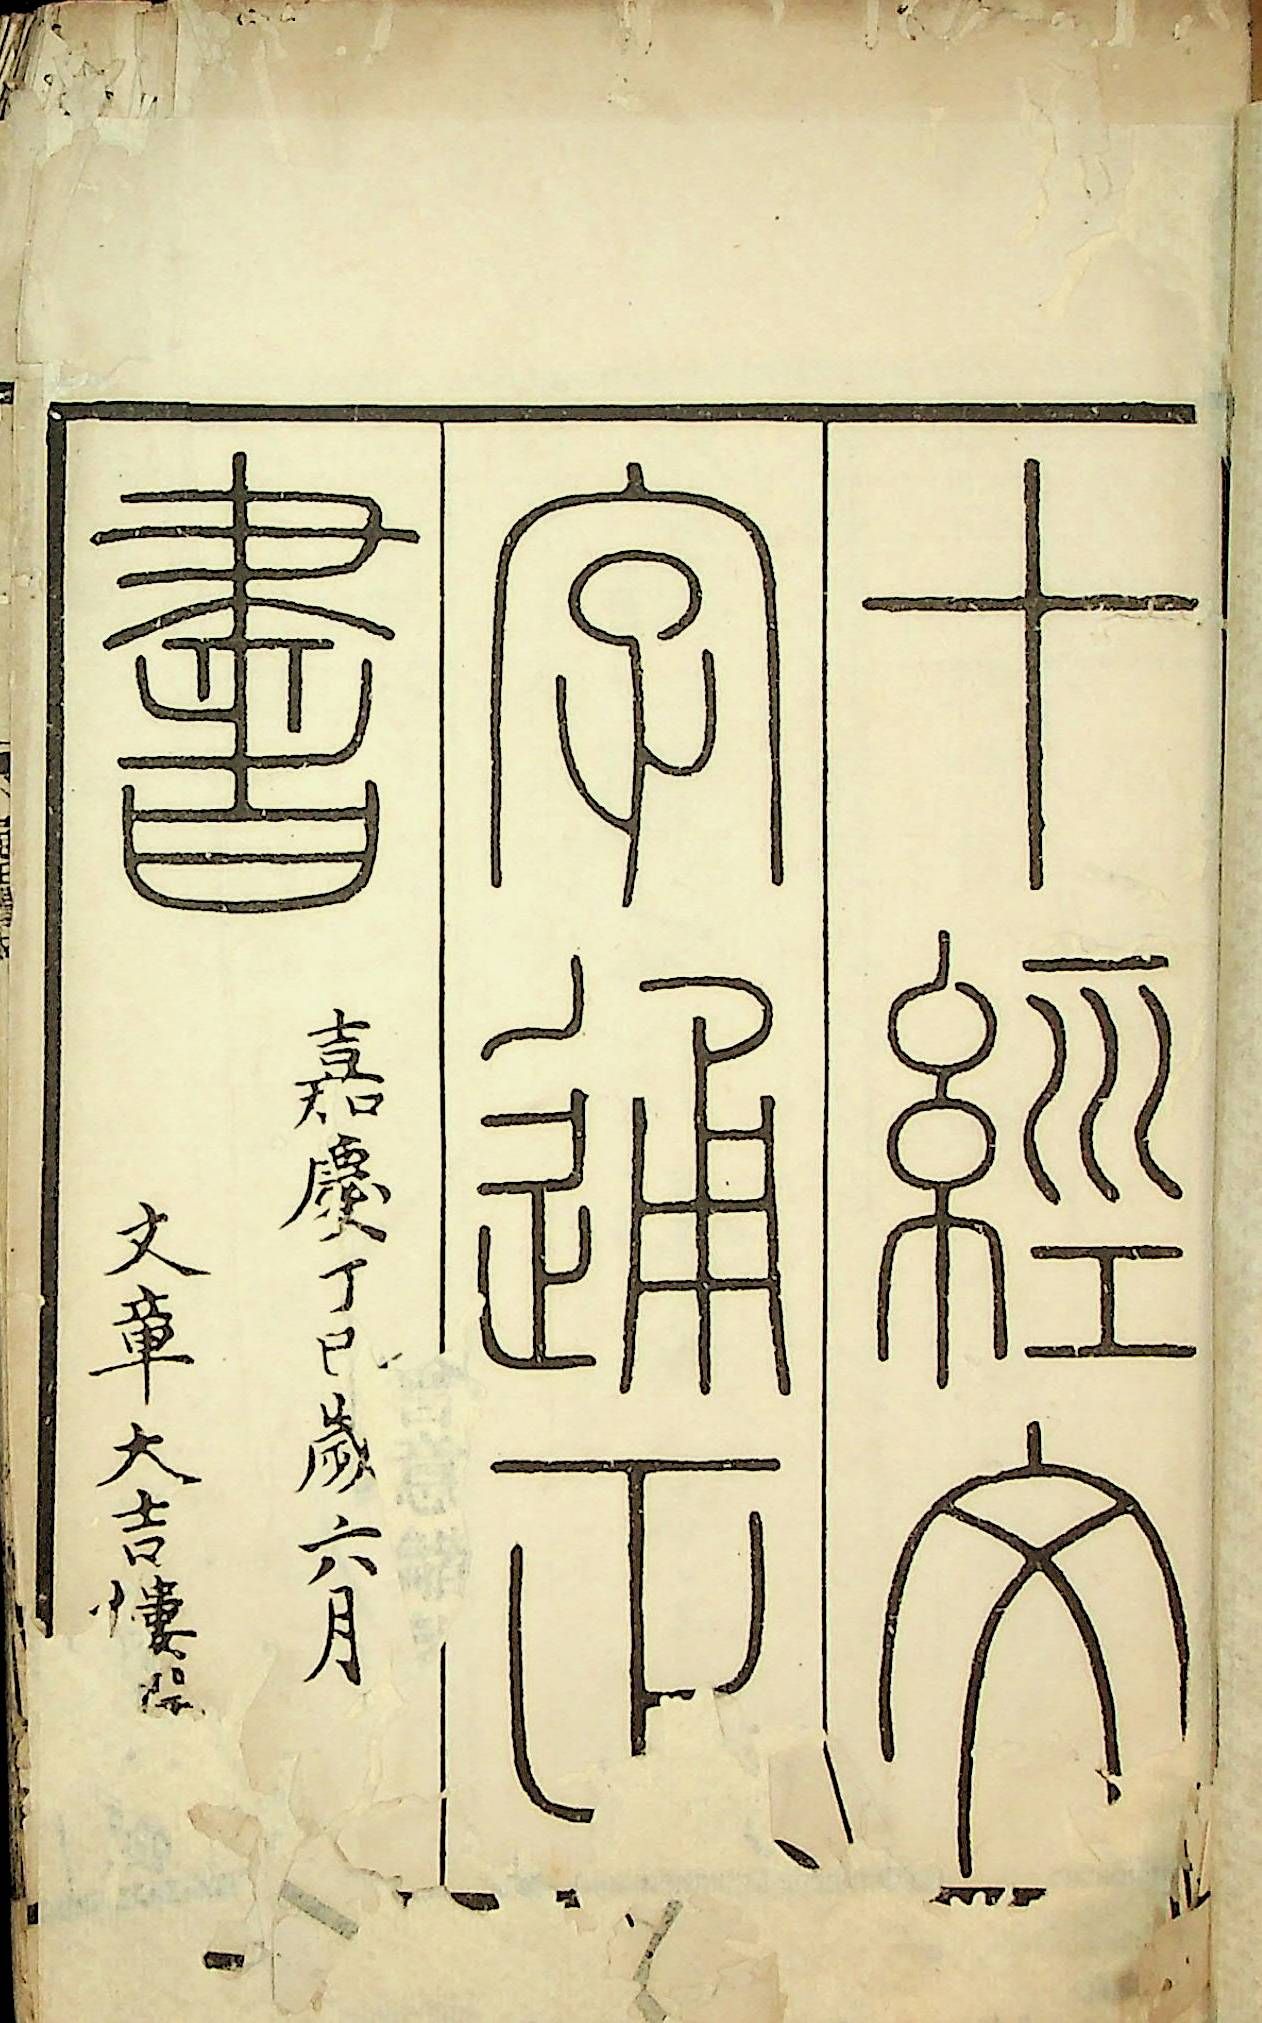 十經文
字通正
書
嘉慶丁巳歲六月
文章大吉樓